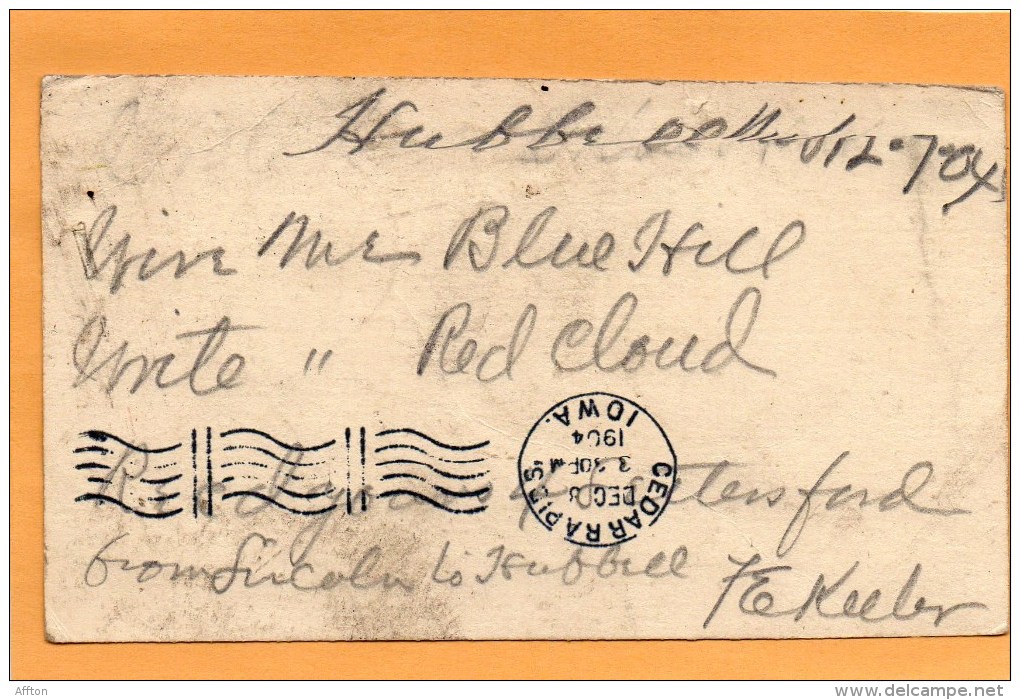 Hubbell Neb 12-7-04
Wire Me Blue Hill
Write " Red Cloud
CEDAR RAPIDS, IOWA.
DEC 8
3 30P M
1904
& Petersford
from Lincoln to Hubbell FE Keeler
Affton
http://www.delcampe.net